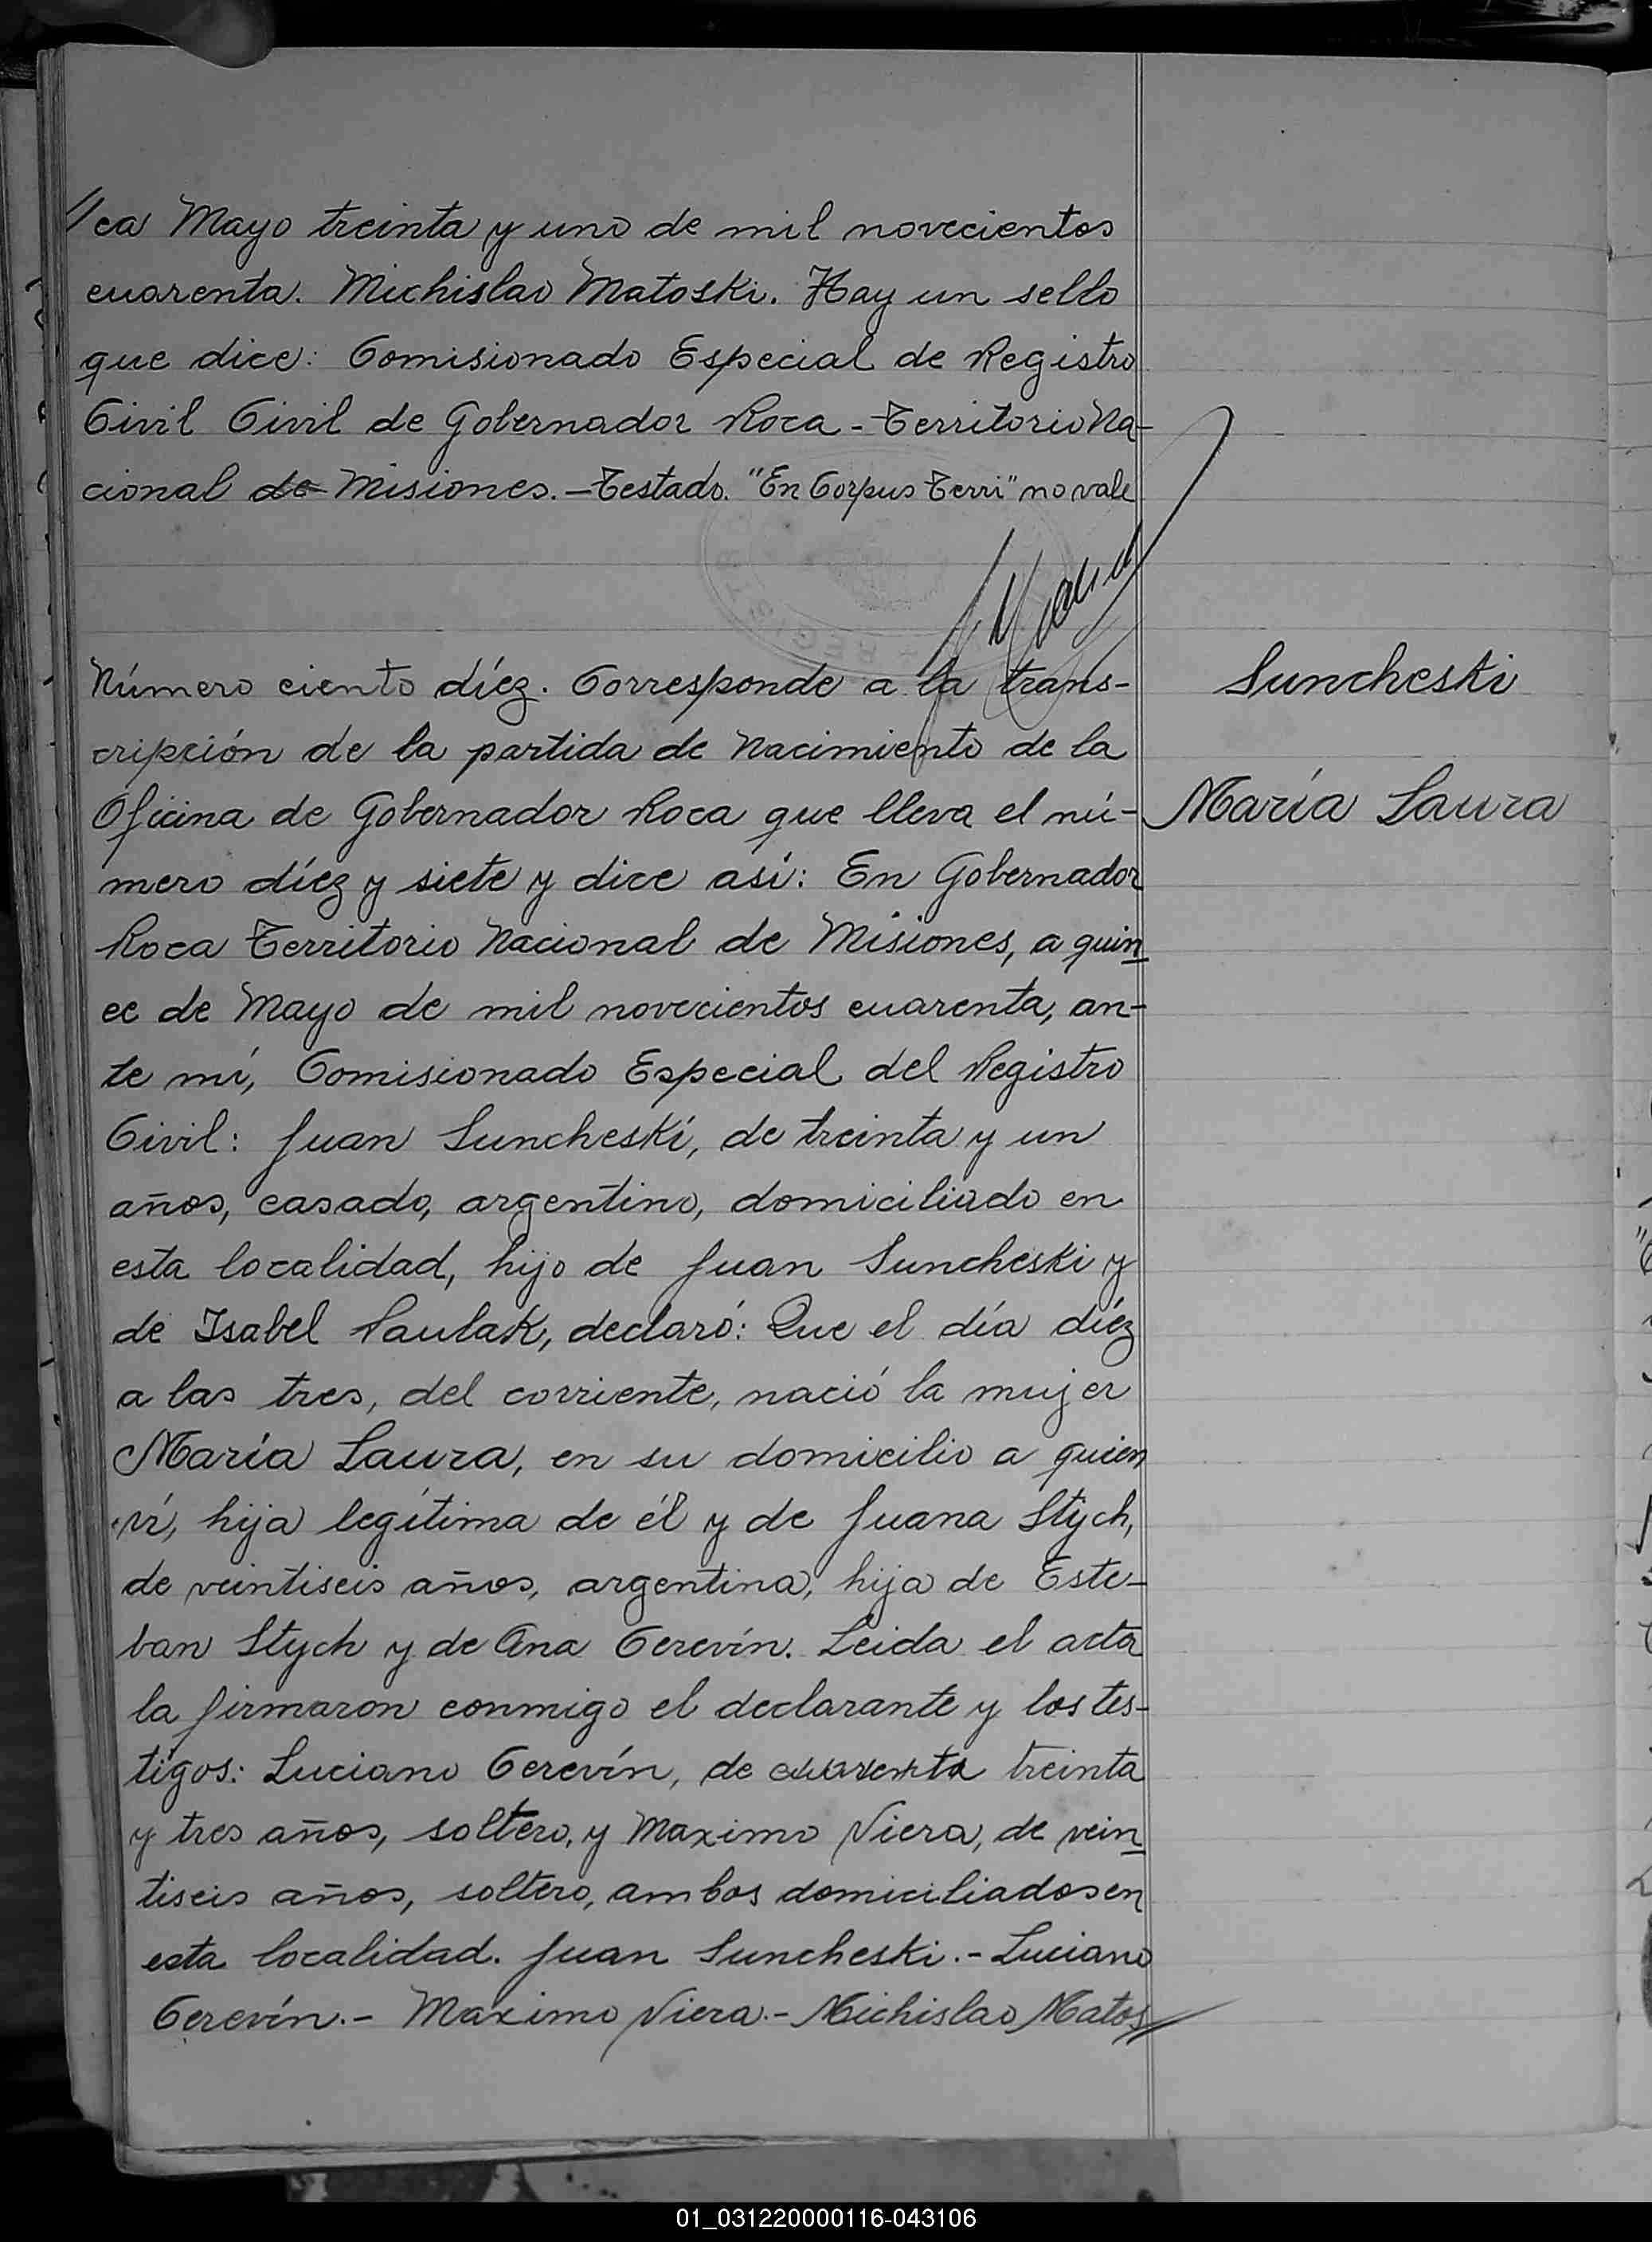 //ca Mayo treinta y uno de mil novecientos
cuarenta. Michislao Matoski. Hay un sello
que dice: Comisionado Especial de Registro
Civil Civil de Gobernador Roca - Territorio Na-
cional de Misiones. - Testado. "En Corpus Terri" no vale
Número ciento díez. Corresponde a la trans-
cripción de la partida de Nacimiento de la
Oficina de Gobernador Roca que lleva el nú-
mero díez y siete y dice así: En Gobernador
Roca Territorio Nacional de Misiones, a quin
ce de Mayo de mil novecientos cuarenta, an-
te mí, Comisionado Especial del Registro
Civil: Juan Suncheski, de treinta y un
años, casado, argentino, domiciliado en
esta localidad, hijo de Juan Suncheski y
de Isabel Paulak, declaró: Que el día díez
a las tres, del corriente, nació la mujer
María Laura, en su domicilio a quien
ví, hija legítima de él y de Juana Stych,
de veintiseis años, argentina, hija de Este-
ban Stych y de Ana Cerevín. Leida el acta
la firmaron conmigo el declarante y los tes-
tigos: Luciano Cerevín, de cuarenta treinta
y tres años, soltero, y Maximo Viera, de vein
tiseis años, soltero, ambos domiciliados en
esta localidad. Juan Suncheski. - Luciano
Cerevín. - Maximo Viera. - Michislao Matos//
Suncheski
María Laura
01_031220000116-043106